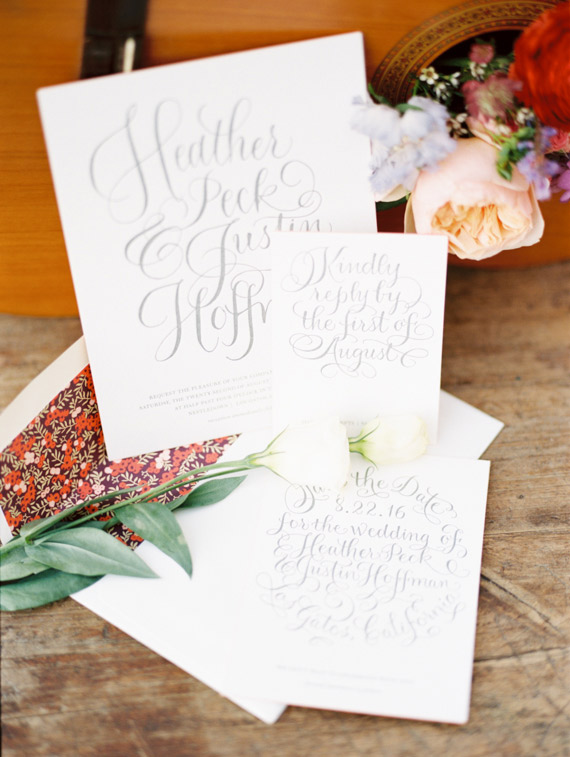 Heather
Peck
& Justin
Hoff
REQUEST THE PLEASURE OF YOUR
SATURDAY, THE
AT HALF PAST
Kindly
reply by
the first of
August
Save the Date
8.22.16
for the wedding of
Heather Peck
& Justin Hoffman
Los Gatos, California